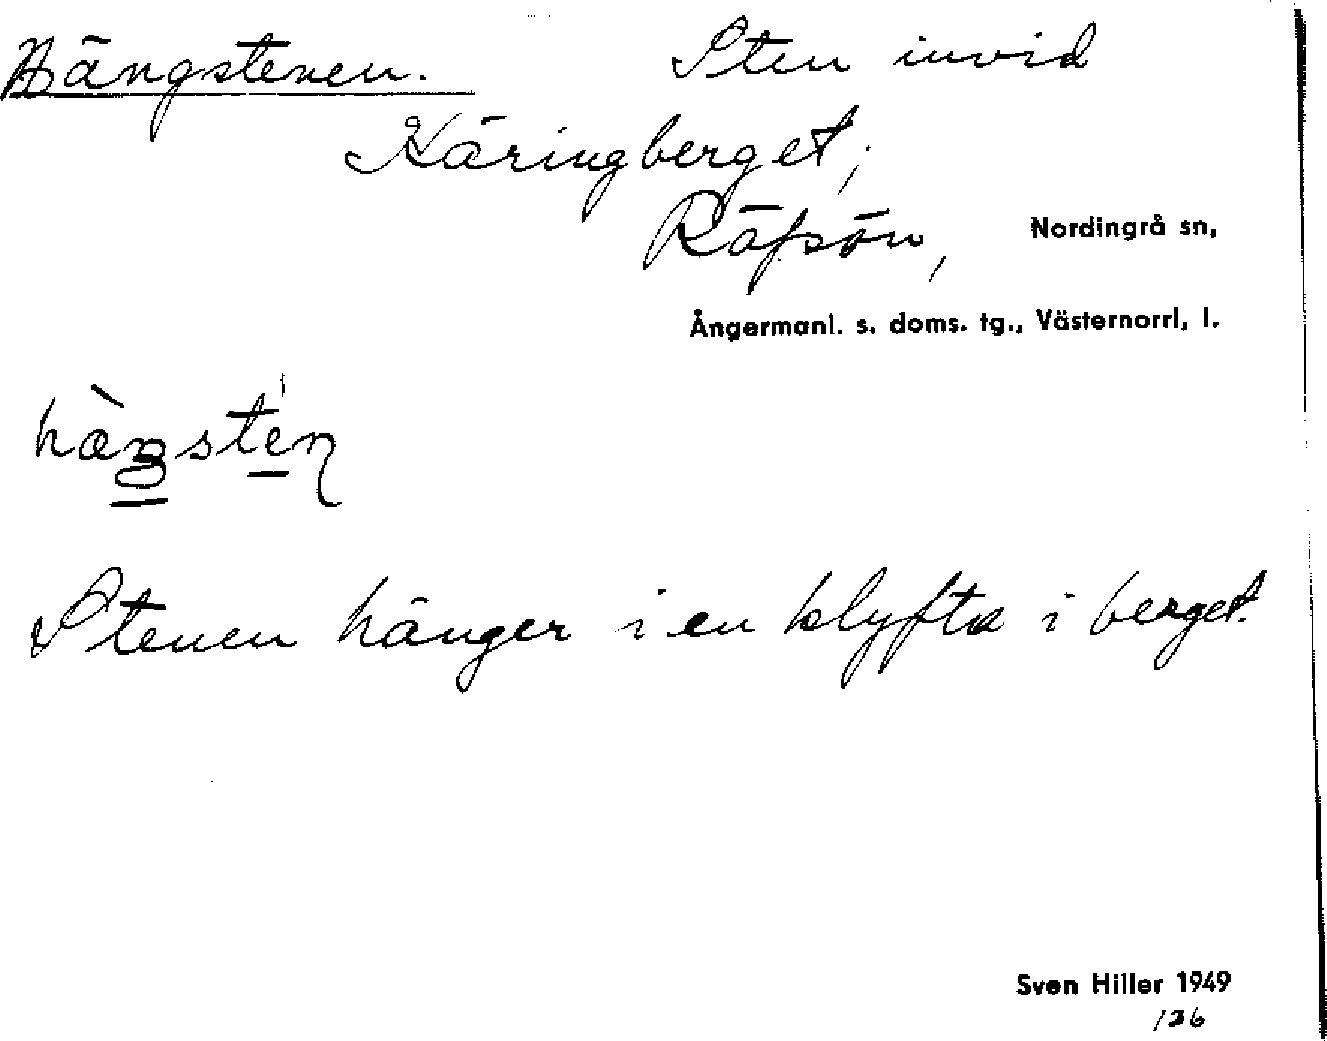 Hängstenen. Sten invid
Käringberget,
Räfsön, Nordingrå sn,
Ångermanl. s. doms. tg., Västernorrl. l.
Stenen hänger i en klyfta i berget.
Sven Hiller 1949
126